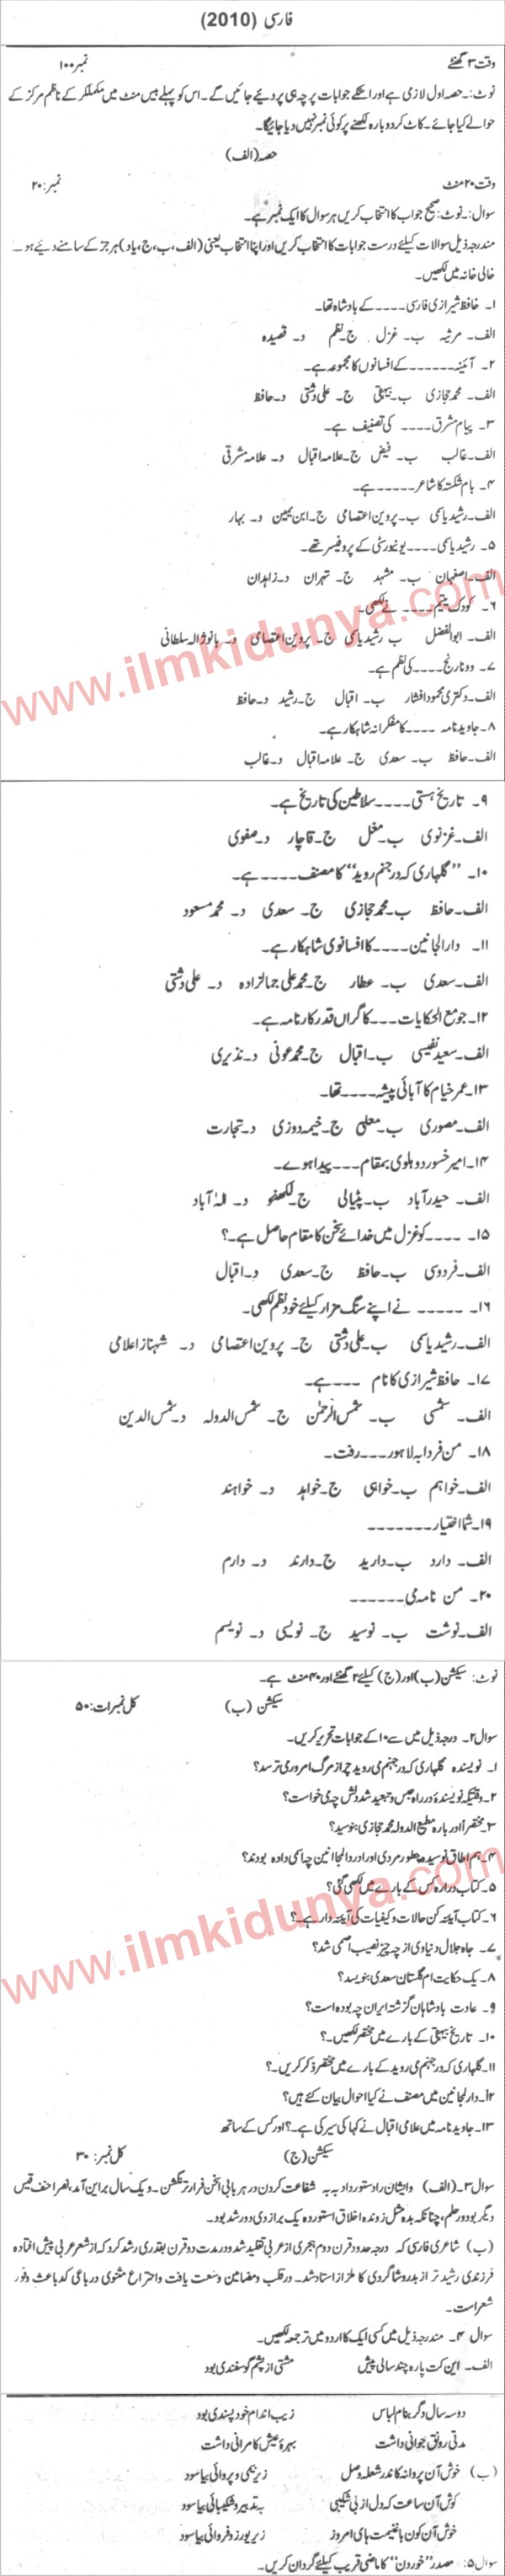 فارسی (2010)
وقت ۳ گھنٹے نمبر ۱۰۰
نوٹ:۔ حصہ اول لازمی ہے اور اسکے جوابات پرچہ ہی پر دیئے جائیں گے۔ اس کو پہلے بیس منٹ میں مکمل کر کے ناظم مرکز کے
حوالے کیا جائے۔ کاٹ کر دوبارہ لکھنے پر کوئی نمبر نہیں دیا جائیگا۔
حصہ (الف)
وقت ۲۰ منٹ نمبر: ۲۰
سوال:۔ نوٹ: صحیح جواب کا انتخاب کریں ہر سوال کا ایک نمبر ہے۔
مندرجہ ذیل سوالات کیلئے درست جوابات کا انتخاب کریں اور اپنا انتخاب یعنی (الف، ب، ج، یا د) ہر جز کے سامنے دیئے ہو۔
خالی خانہ میں لکھیں۔
۱۔ حافظ شیرازی فارسی ۔۔۔۔ کے بادشاہ تھا۔
الف۔ مرثیہ ب۔ غزل ج۔ نظم د۔ قصیدہ
۲۔ آئینہ ۔۔۔۔۔۔ کے افسانوں کا مجموعہ ہے۔
الف۔ محمد حجازی ب۔ بیہقی ج۔ علی دشتی د۔ حافظ
۳۔ پیام مشرق ۔۔۔۔ کی تصنیف ہے۔
الف۔ غالب ب۔ فیض ج۔ علامہ اقبال د۔ علامہ مشرقی
۴۔ بام شکستہ کا شاعر ۔۔۔۔۔ ہے۔
الف۔ رشید یاسمی ب۔ پروین اعتصامی ج۔ ابن یمین د۔ بہار
۵۔ رشید یاسمی ۔۔۔۔ یونیورسٹی کے پروفیسر تھے۔
الف۔ اصفہان ب۔ مشہد ج۔ تہران د۔ زاہدان
۶۔ کودک یتیم ۔۔۔۔ نے لکھی۔
الف۔ ابوالفضل ب رشید یاسمی ج۔ پروین اعتصامی د۔ بانو ژالہ سلطانی
۷۔ دو نارنج ۔۔۔۔ کی نظم ہے۔
الف۔ دکتری محمود افشار ب۔ اقبال ج۔ رشید د۔ حافظ
۸۔ جاوید نامہ ۔۔۔۔ کا مفکرانہ شاہکار ہے۔
الف۔ حافظ ب۔ سعدی ج۔ علامہ اقبال د۔ غالب
www.ilmkidunya.com
۹۔ تاریخ ہستی ۔۔۔۔ سلاطین کی تاریخ ہے۔
الف۔ غزنوی ب۔ مغل ج۔ قاچار د۔ صفوی
۱۰۔ "گلہاری کہ در جہنم روید" کا مصنف ۔۔۔۔ ہے۔
الف۔ حافظ ب۔ محمد حجازی ج۔ سعدی د۔ محمد مسعود
۱۱۔ دارالجانین ۔۔۔۔ کا افسانوی شاہکار ہے۔
الف۔ سعدی ب۔ عطار ج۔ محمد علی جمالزادہ د۔ علی دشتی
۱۲۔ جومع الحکایات ۔۔۔ کا گراں قدر کارنامہ ہے۔
الف۔ سعید نفیسی ب۔ اقبال ج۔ محمد عونی د۔ نذیری
۱۳۔ عمر خیام کا آبائی پیشہ ۔۔۔۔ تھا۔
الف۔ مصوری ب۔ معلمی ج۔ خیمہ دوزی د۔ تجارت
۱۴۔ امیر خسور دوہلوی بمقام ۔۔۔ پیدا ہوے۔
الف۔ حیدر آباد ب۔ پٹیالی ج۔ لکھنو د۔ الہٰ آباد
۱۵۔ ۔۔۔۔ کو غزل میں خدائے سخن کا مقام حاصل ہے۔؟
الف۔ فردوسی ب۔ حافظ ج۔ سعدی د۔ اقبال
۱۶۔ ۔۔۔۔۔ نے اپنے سنگ مزار کیلئے خود نظم لکھی۔
الف۔ رشید یاسمی ب۔ علی دشتی ج۔ پروین اعتصامی د۔ شہناز اعلامی
۱۷۔ حافظ شیرازی کا نام ۔۔۔ ہے۔
الف۔ شمسی ب۔ شمس الرحمٰن ج۔ شمس الدولہ د۔ شمس الدین
۱۸۔ من فردا بہ لاہور ۔۔۔ رفت۔
الف۔ خواہم ب۔ خواہی ج۔ خواہد د۔ خواہند
۱۹۔ شما اختیار ۔۔۔۔۔۔۔
الف۔ دارد ب۔ دارید ج۔ دارند د۔ دارم
۲۰۔ من نامہ می ۔۔۔۔۔۔
الف۔ نوشت ب۔ نوسید ج۔ نویسی د۔ نویسم
نوٹ: سیکشن (ب) اور (ج) کیلئے ۲ گھنٹے اور ۴۰ منٹ ہے۔
سیکشن (ب) کل نمبرات: ۵۰
سوال ۲۔ درجہ ذیل میں سے ۱۰ کے جوابات تحریر کریں۔
۱۔ نویسندہ گلہاری کہ در جہنم می روید چرا از مرگ امروز می ترسد؟
۲۔ وقتیکہ نویسندۂ در راہ حبس و تبعید شد دلش چہ می خواست؟
۳۔ مختصراً دربارہ مطیع الدولہ محمد حجازی بنوسید؟
۴۔ ہم اطاق نوسیدہ چطور مردی اور ادر دالجانین چہ اسمی دادہ بودند؟
۵۔ کتاب درارہ کس کے بارے میں لکھی گئی؟
۶۔ کتاب آئینہ کن حالات و کیفیات کی آئینہ دار ہے۔؟
۷۔ جاہ جلال دنیاوی از چہ چیز نصیب اسمی شد؟
۸۔ یک حکایت ام گلستان سعدی بنویسد؟
۹۔ عادت بادشاہان گزشتہ ایران چہ بودہ است؟
۱۰۔ تاریخ بیہقی کے بارے میں مختصر لکھیں۔؟
۱۱۔ گلہاری کہ در جہنم می روید کے بارے میں مختصر ذکر کریں۔؟
۱۲۔ دارلجانین میں مصنف نے کیا احوال بیان کئے ہیں؟
۱۳۔ جاوید نامہ میں علامی اقبال نے کہا کی سیر کی ہے۔؟ اور کس کے ساتھ
www.ilmkidunya.com
سیکشن (ج) کل نمبر: ۳۰
سوال ۳۔ (الف) وایشان را دستور داد بہ بہ شفاعت کردن در ہر بابی انحن فرار تر نگشن۔ ویک سال بر این آمد، نصر احنف قیس
دیگر بود ور حلم، چنانکہ بدہ مثل زوندہ اخلاق استوردہ یک براز دی دور شد بود۔
(ب) شاعری فارسی کہ درجہ حدود قرن دوم ہجری از عربی تقلید شد و در مدت دو قرن بقدری رشد کرد کہ از شعر عربی پیش افتادہ
فرزندی رشید تر از پدر و شاگردی کا ملز از استاد شد۔ در قلب و مضامین وسعت یافت و احتراع مثنوی در باعی کہ باعث وفور
شعر است۔
سوال ۴۔ مندرجہ ذیل میں کسی ایک کا اردو میں ترجمہ لکھیں۔
الف۔ این کت پارہ چند سالی پیش مشتی از پشم گوسفندی بود
دو سہ سال دگر بنام لباس زیب اندام خود پسندی بود
مدتی رونق جوانی داشت بہرۂ عیش کامرانی داشت
(ب) خوش آن پروانہ کاندر شعلہ وصل زیر بیمی و پروائی بیا سود
کوش آن ساعت کہ دل از بی شکیبی بہ تدبیر و شکیبائی بیا سود
خوش آن کون با غنیمت ہای امروز زیر یور ز و فروائی بیا سود
سوال ۵: مصدر "خوردن" کا ماضی قریب کیلئے گردان کریں۔